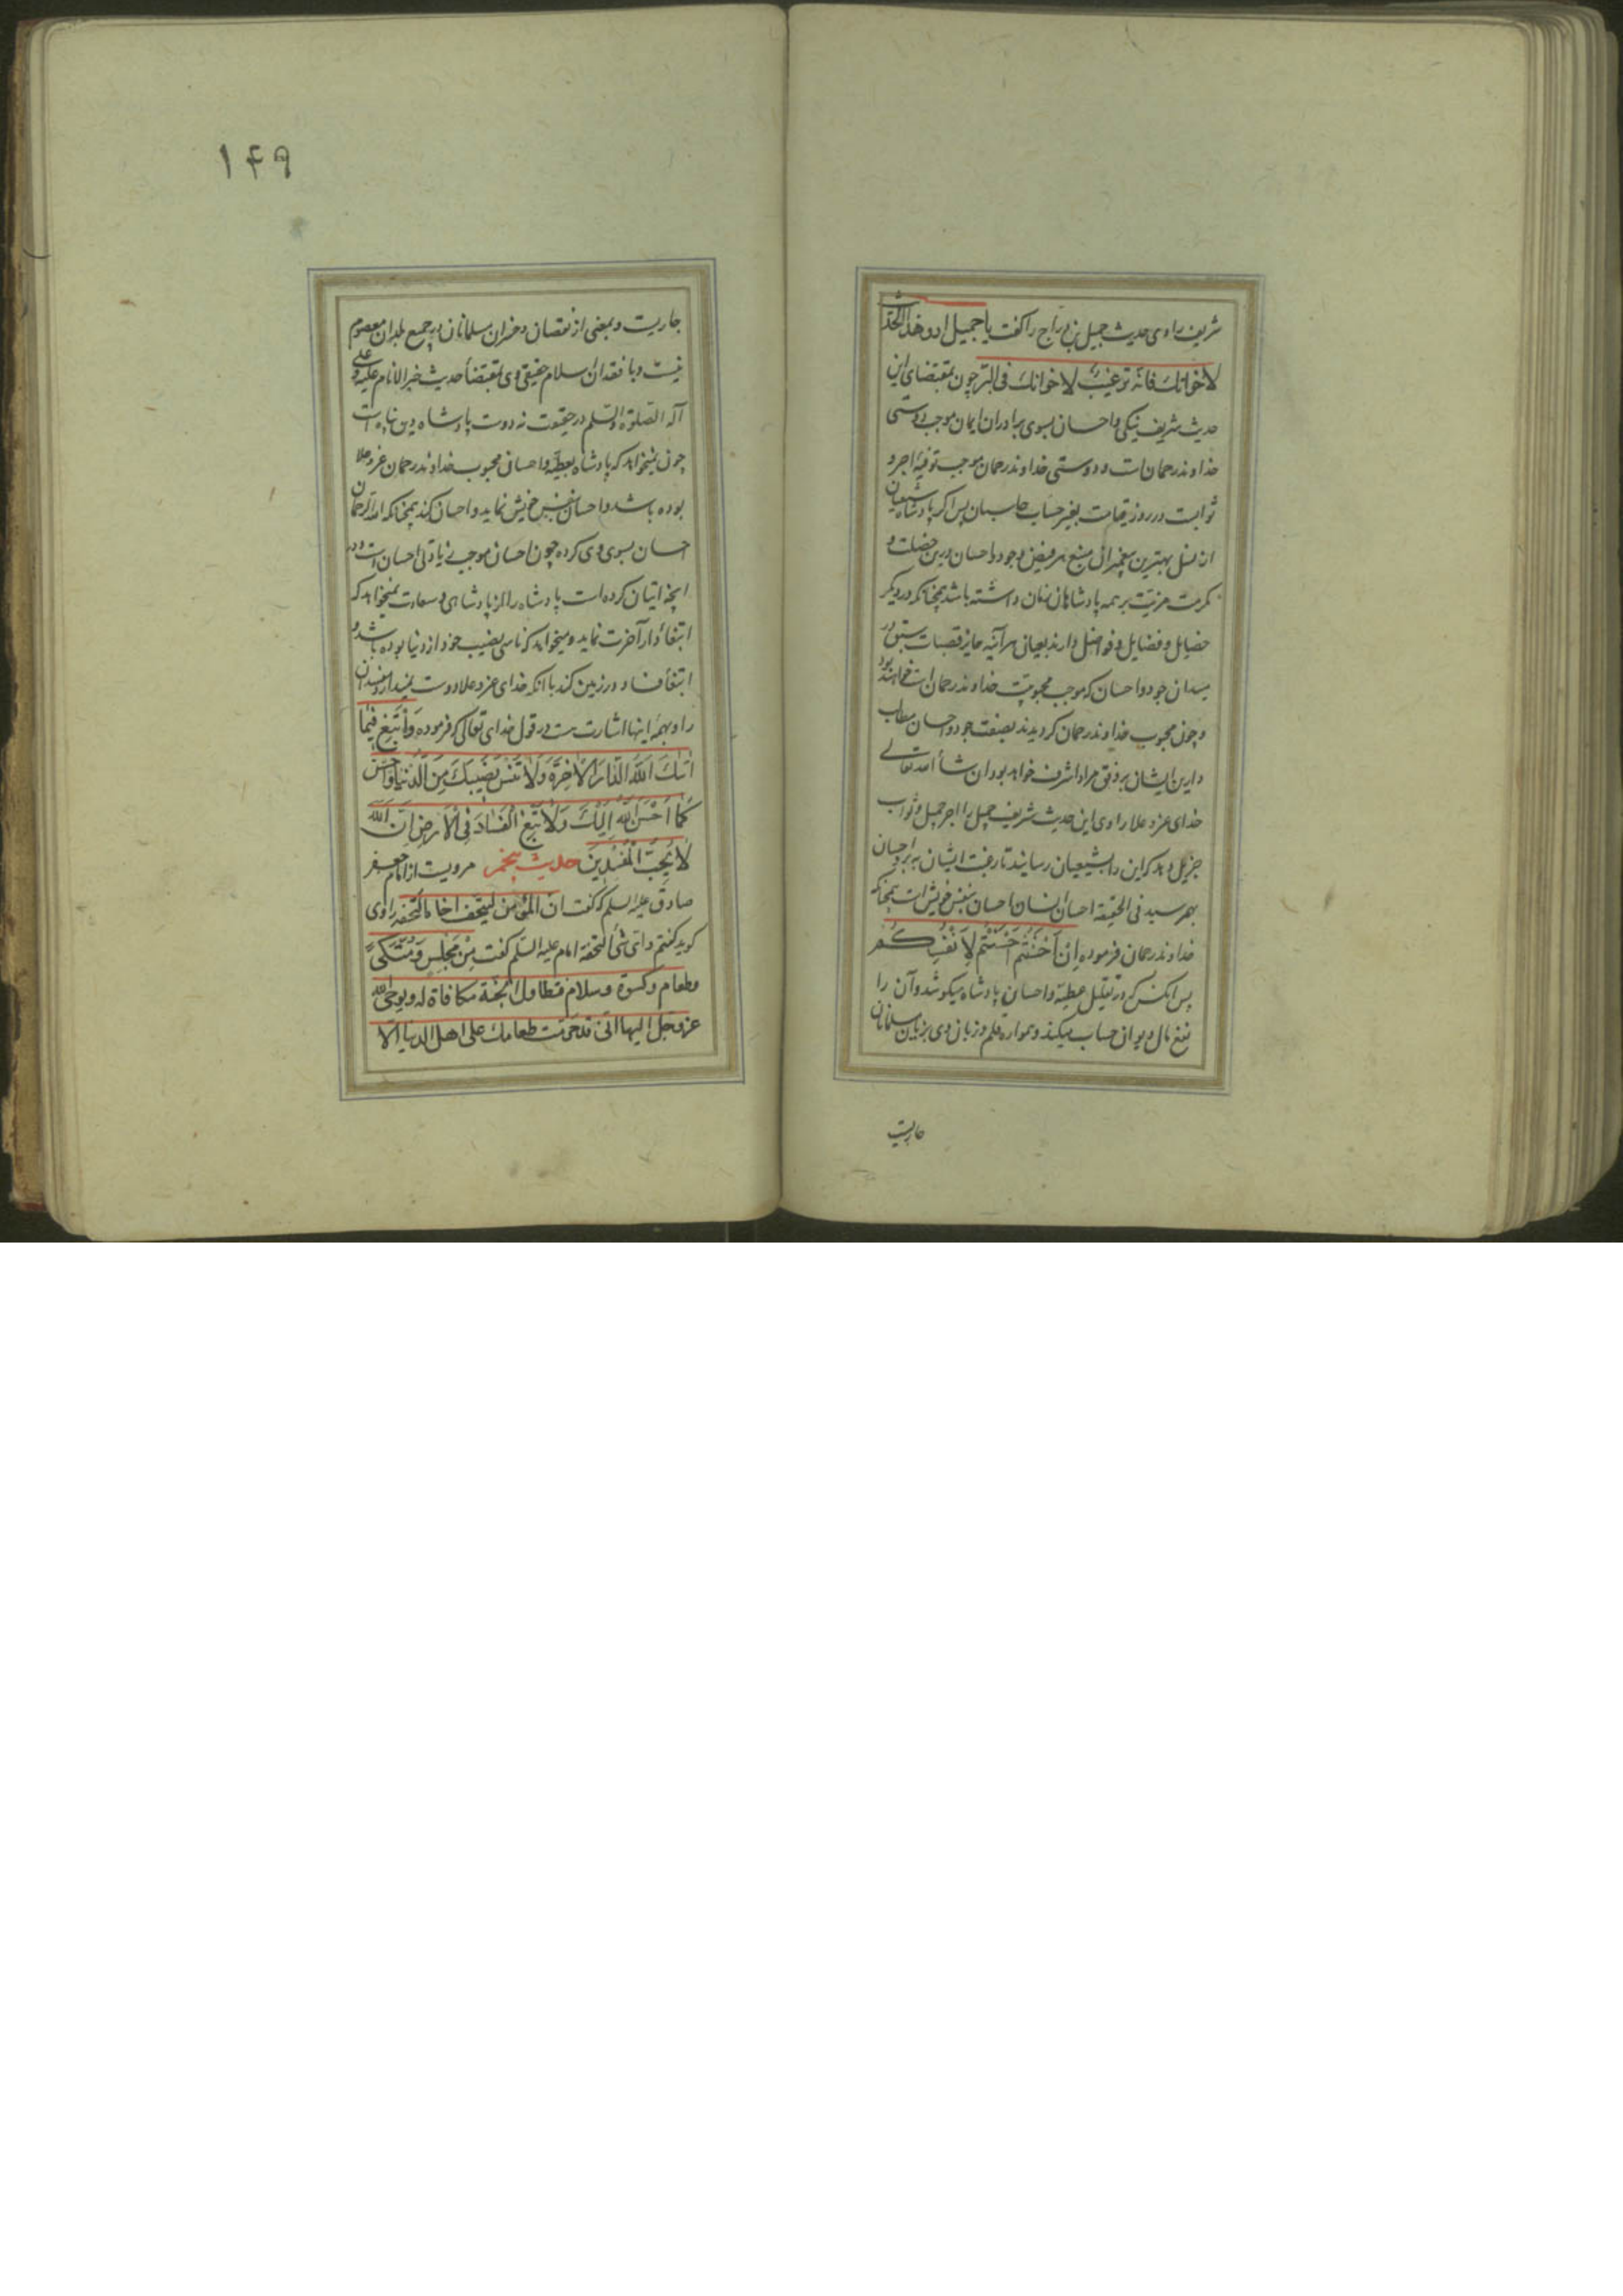 شریف راوی حدیث جمیل بن دراج را گفت یا جمیل ارو هذا الحدیث
لاخوانك فانه ترغیب لاخوانك فی البر چون بمقتضای این
حدیث شریف نیکی و احسان بسوی برادران ایمان موجب دوستی
خداوند رحمان است و دوستی خداوند رحمان موجب توفیه اجر و
ثوابست در روز قیامت بغیر حساب حاسبان پس اگر پادشاه شیعیان
از نسل بهترین پیغمبران منبع هر فیض و جود و احسان درین خصلت و
مکرمت مزیت بر همه پادشاهان زمان داشته باشد همچنانکه در دیگر
خصایل و فضایل و فواضل دارند بعیانی هرآینه حایز قصبات سبق در
میدان جود و احسان که موجب محبوبیت خداوند رحمان است خواهند بود
و چون محبوب خداوند رحمان گردیدند بصفت جود و احسان مطالب
دارین ایشان بر وفق مراد اشرف خواهد بود ان شاء الله تعالی
خدای عز و علا راوی این حدیث شریف جمیل را اجر جمیل و ثواب
جزیل دهد که این را بشیعیان رسانید تا رغبت ایشان به بر و احسان
بهم رسید فی الحقیقة احسان انسان احسان بنفس خویش است همچنانکه
خداوند رحمان فرموده اِنْ اَحْسَنْتُم اَحْسَنْتُم لِاَنْفُسِكُم
پس آنکس که در تقلیل عطیه و احسان پادشاه میکوشد و آن را
نفع مال دیوان حساب میکند و همواره قلم و زبان وی بزیان مسلمانان
جاریست
جاریست و بمعنی از نقصان و خسران مسلمانان در جمیع بلدان معصوم
نیست و با فقدان اسلام حقیقی وی بمقتضاء حدیث خیر الانام علیه و علی
آله الصلوة و السلم در حقیقت نه دوست پادشاه دین پناه است
چون نمیخواهد که پادشاه بعطیه و احسانی محبوب خداوند رحمان عز و علا
بوده باشد و احسان بنفس خویش نماید و احسان کند همچنانکه الله الرحمان
احسان بسوی وی کرده چون احسان موجب زیادتی احسان است و در
آنچه اتیان کرده است پادشاه را از پادشاهی و سعادت نمیخواهد که
ابتغاء دار آخرت نماید و میخواهد که ناسی نصیب خود از دنیا بوده باشد و
ابتغاء فساد در زمین کند با آنکه خدای عز و علا دوست نمیدارد مفسدان
را و بهمه اینها اشارتست در قول خدای تعالی که فرموده وَابْتَغِ فِیمَا
اٰتٰیكَ اللهُ الدَّارَ الْاٰخِرَةَ وَلَا تَنْسَ نَصِیبَكَ مِنَ الدُّنْیَا وَاَحْسِنْ
كَمَا اَحْسَنَ اللهُ اِلَیْكَ وَلَا تَبْغِ الْفَسَادَ فِی الْاَرْضِ اِنَّ اللهَ
لَا یُحِبُّ الْمُفْسِدِینَ حدیث پنجم مرویست از امام جعفر
صادق علیه السلم که گفت ان المؤمن لیتحف اخاه التحفه راوی
گوید گفتم و ای شئ التحفة امام علیه السلم گفت مِنْ مَجْلِسٍ وَ مُتَّكَیً
و طعام و كسوة و سلام فتطاول الجنة مكافاة له و یوحی الله
عز و جل الیها انی قد حرمت طعامك علی اهل الدنیا الا
۱۴۹